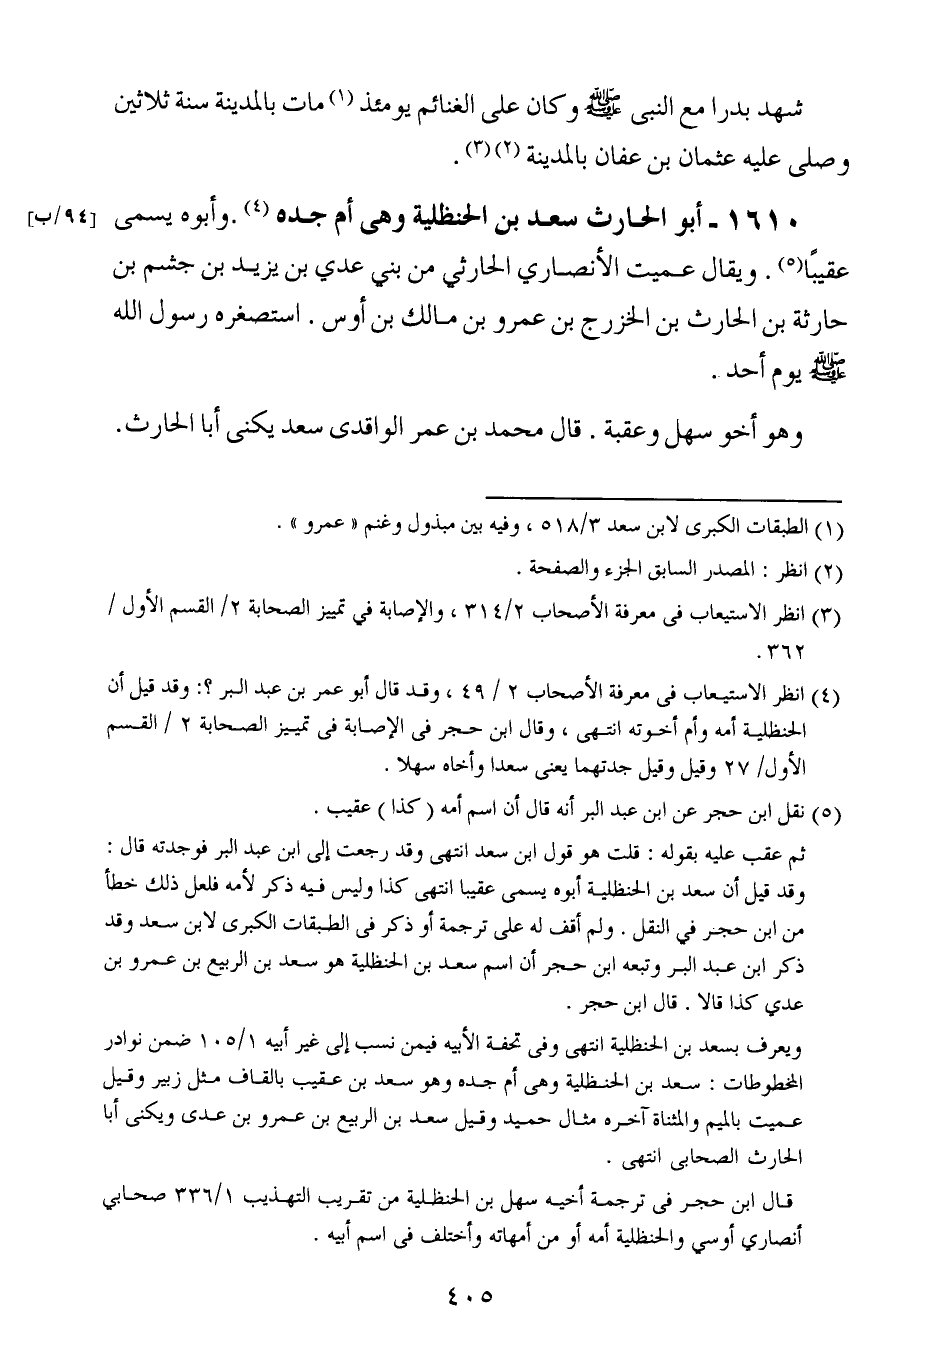 شهد بدرا مع النبى ﷺ وكان على الغنائم يومئذ (١) مات بالمدينة سنة ثلاثين
وصلى عليه عثمان بن عفان بالمدينة (٢)(٣) .
١٦١٠ - أبو الحارث سعد بن الحنظلية وهى أم جده (٤) . وأبوه يسمى [٩٤/ب]
عقيبًا(٥) . ويقال عميت الأنصاري الحارثي من بني عدي بن يزيد بن جشم بن
حارثة بن الحارث بن الخزرج بن عمرو بن مالك بن أوس . استصغره رسول الله
ﷺ يوم أحد .
وهو أخو سهل وعقبة . قال محمد بن عمر الواقدى سعد يكنى أبا الحارث.
(١) الطبقات الكبرى لابن سعد ٥١٨/٣ ، وفيه بين مبذول وغنم « عمرو » .
(٢) انظر : المصدر السابق الجزء والصفحة .
(٣) انظر الاستيعاب فى معرفة الأصحاب ٣١٤/٢ ، والإصابة في تمييز الصحابة ٢/ القسم الأول /
٣٦٢ .
(٤) انظر الاستيعاب فى معرفة الأصحاب ٢ / ٤٩ ، وقد قال أبو عمر بن عبد البر ؟: وقد قيل أن
الحنظلية أمه وأم أخوته انتهى ، وقال ابن حجر فى الإصابة فى تمييز الصحابة ٢ / القسم
الأول/ ٢٧ وقيل وقيل جدتهما يعنى سعدا وأخاه سهلا .
(٥) نقل ابن حجر عن ابن عبد البر أنه قال أن اسم أمه ( كذا ) عقيب .
ثم عقب عليه بقوله : قلت هو قول ابن سعد انتهى وقد رجعت إلى ابن عبد البر فوجدته قال :
وقد قيل أن سعد بن الحنظلية أبوه يسمى عقيبا انتهى كذا وليس فيه ذكر لأمه فلعل ذلك خطأ
من ابن حجر في النقل . ولم أقف له على ترجمة أو ذكر فى الطبقات الكبرى لابن سعد وقد
ذكر ابن عبد البر وتبعه ابن حجر أن اسم سعد بن الحنظلية هو سعد بن الربيع بن عمرو بن
عدي كذا قالا . قال ابن حجر .
ويعرف بسعد بن الحنظلية انتهى وفى تحفة الأبيه فيمن نسب إلى غير أبيه ١٠٥/١ ضمن نوادر
المخطوطات : سعد بن الحنظلية وهى أم جده وهو سعد بن عقيب بالقاف مثل زبير وقيل
عميت بالميم والمثناة آخره مثال حميد وقيل سعد بن الربيع بن عمرو بن عدى ويكنى أبا
الحارث الصحابى انتهى .
قال ابن حجر فى ترجمة أخيه سهل بن الحنظلية من تقريب التهذيب ٣٣٦/١ صحابي
أنصاري أوسي والحنظلية أمه أو من أمهاته وأختلف فى اسم أبيه .
٤٠٥